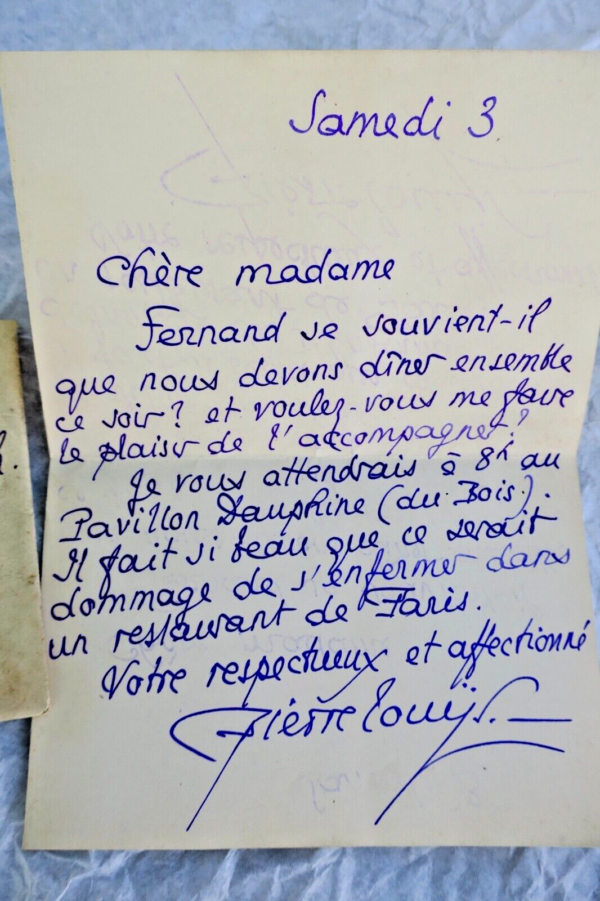 Samedi 3
Chère madame
Fernand se souvient-il
que nous devons dîner ensemble
ce soir? et voulez-vous me faire
le plaisir de l'accompagner?
Je vous attendrais à 8h au
Pavillon Dauphine (du Bois).
Il fait si beau que ce serait
dommage de s'enfermer dans
un restaurant de Paris.
Votre respectueux et affectionné
Pierre Louÿs.